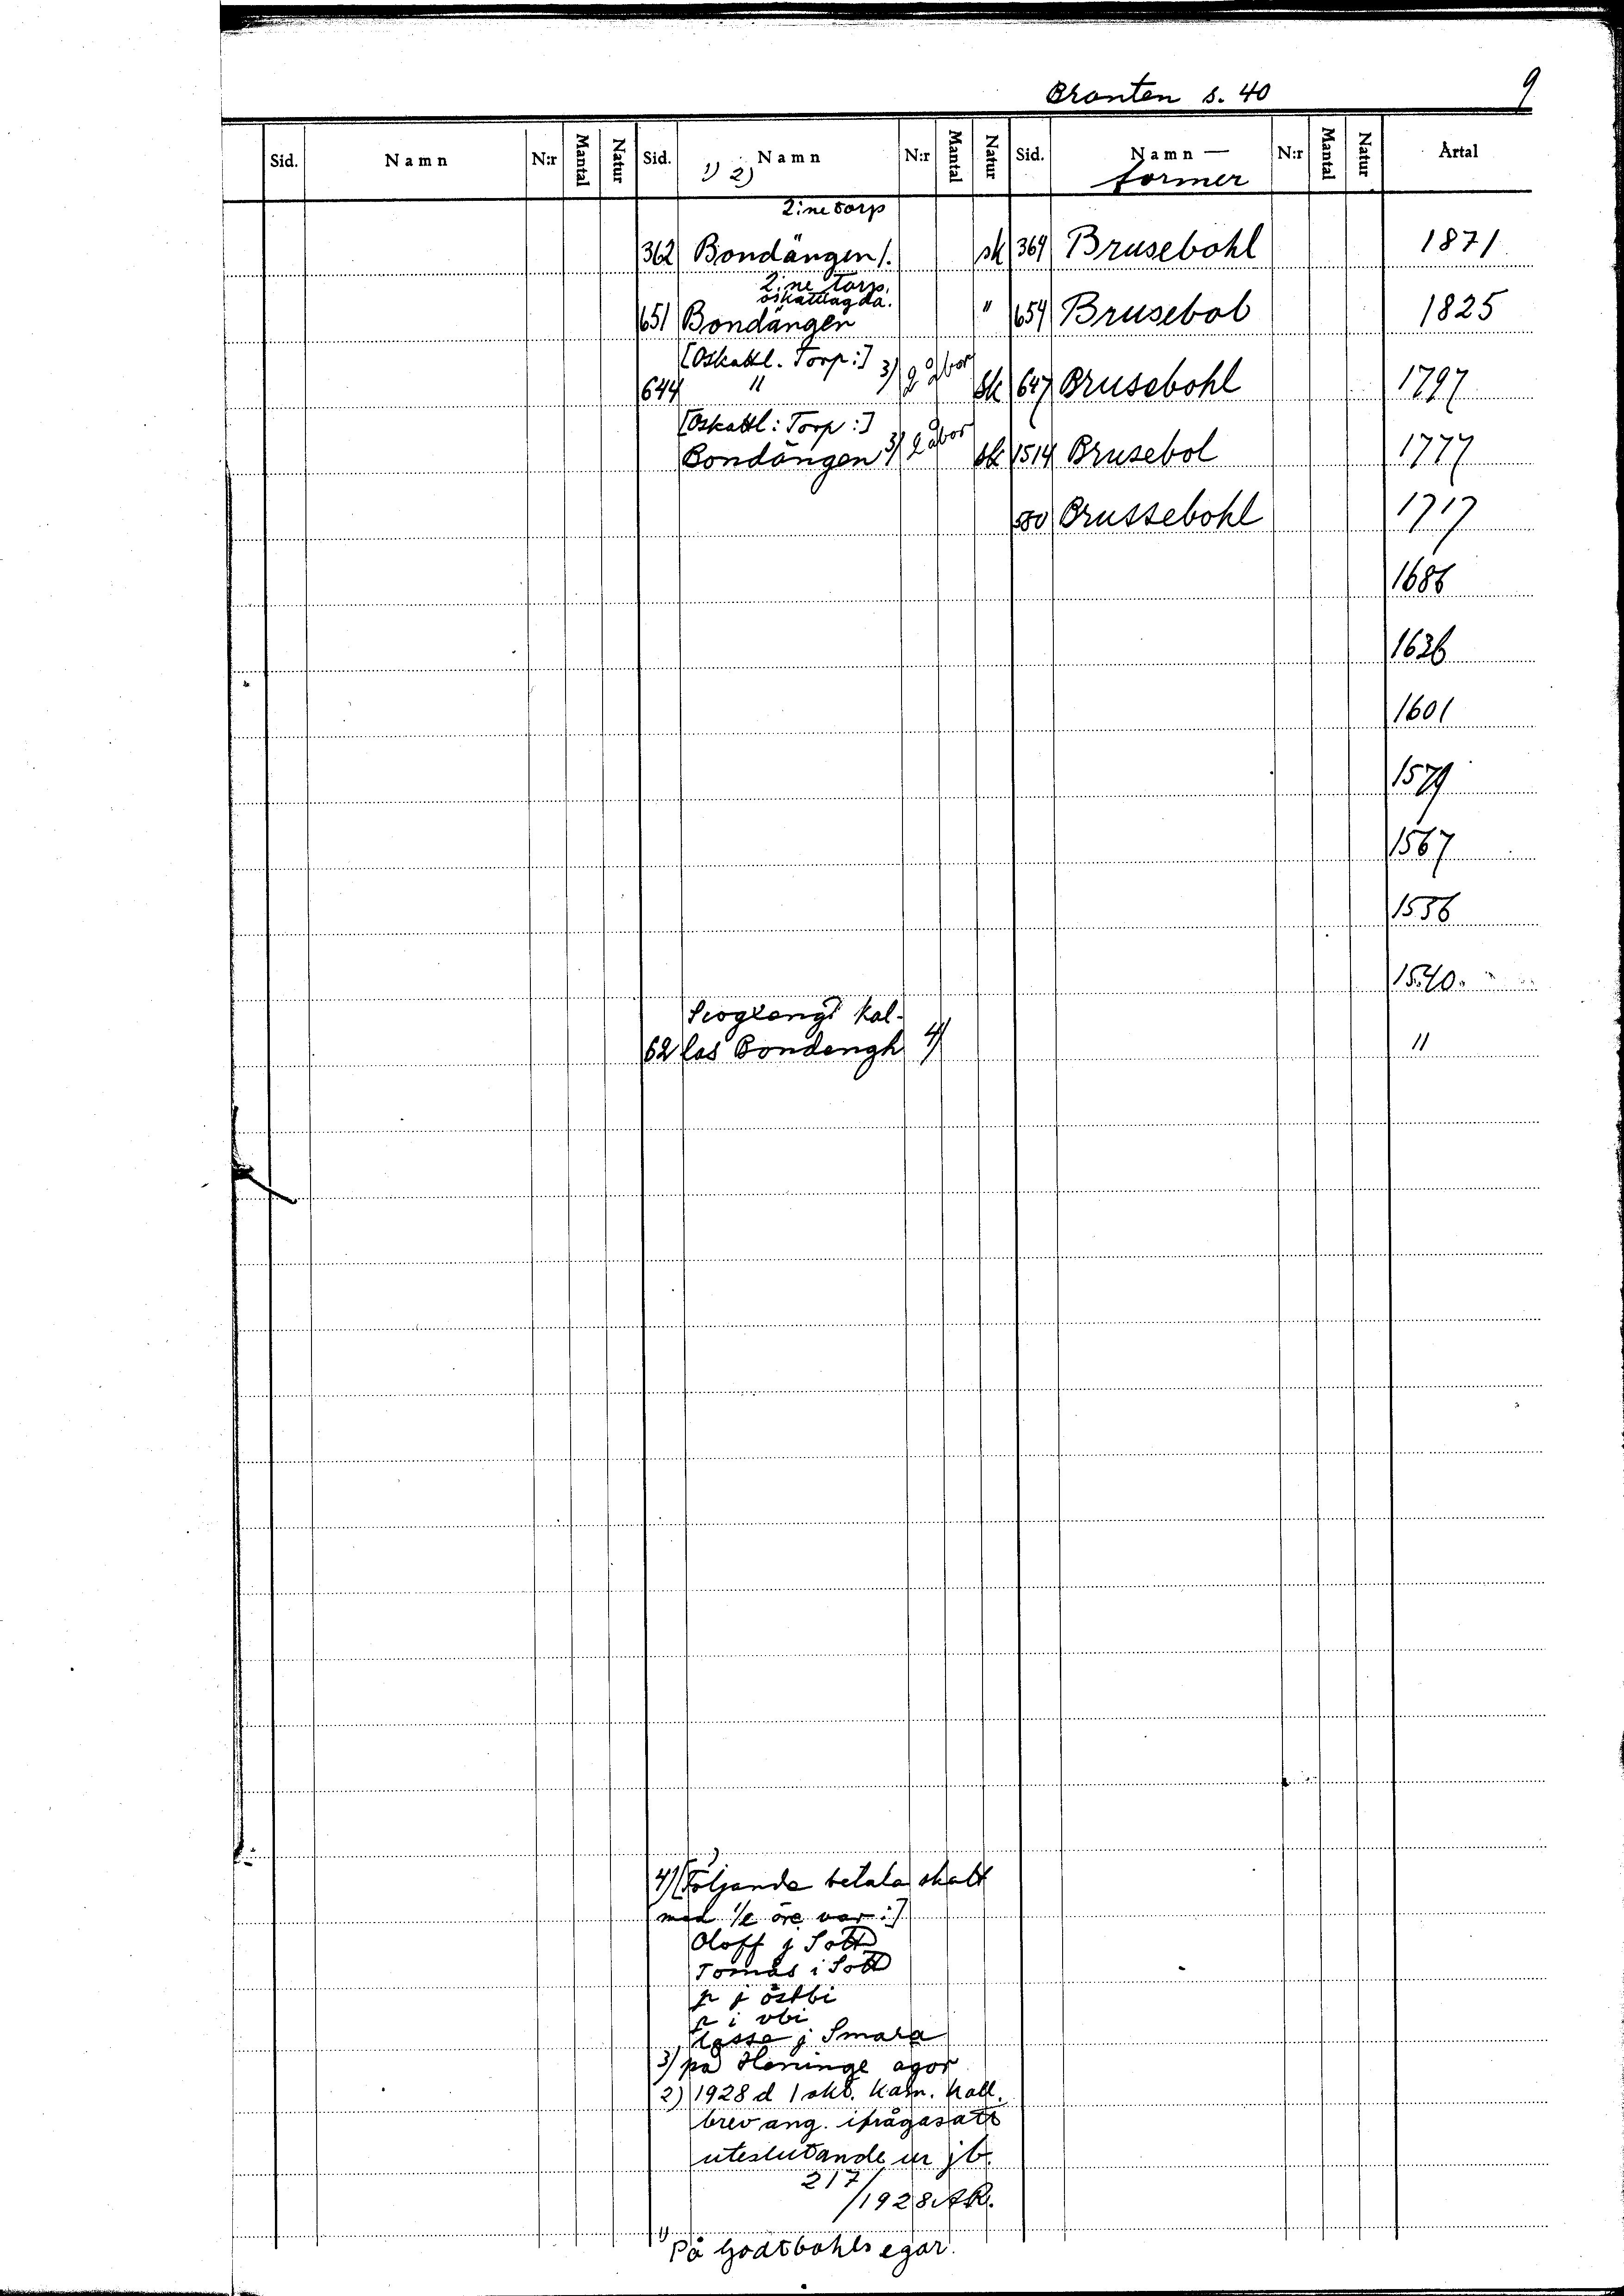 Branten s. 40 9
Sid. Namn N:r Mantal Natur Sid. 1) 2) Namn N:r Mantal Natur Sid. Namn — N:r Mantal Natur Årtal
former
2:ne torp
362 Bondängen 1. sk 369 Brusebohl 1871
2:ne torp,
oskattlagda.
651 Bondängen " 654 Brusebol 1825
[Oskattl. Torp:] 3) 2 åbor
644 " Sk 647 Brusebohl 1797
[Oskattl: Torp:]
Bondängen 3) 2 åbor Sk 1514 Brusebol 1777
580 Brussebohl 1717
1686
1636
1601
1579
1567
1556
1540.
Scogxengt kal-
62 las Bondengh 4) "
4) [Följande betala skatt
med 1/2 öre var:]
Oloff j Sott
Tomas i Sott
p j östbi
p i obi
Lasse j Smara
3) på Haninge agor
2) 1928 d 1 okt. Kam. Koll.
brev ang. ifrågasatt
uteslutande ur jb.
217/1928 AR.
1) På Godtbohls egor.